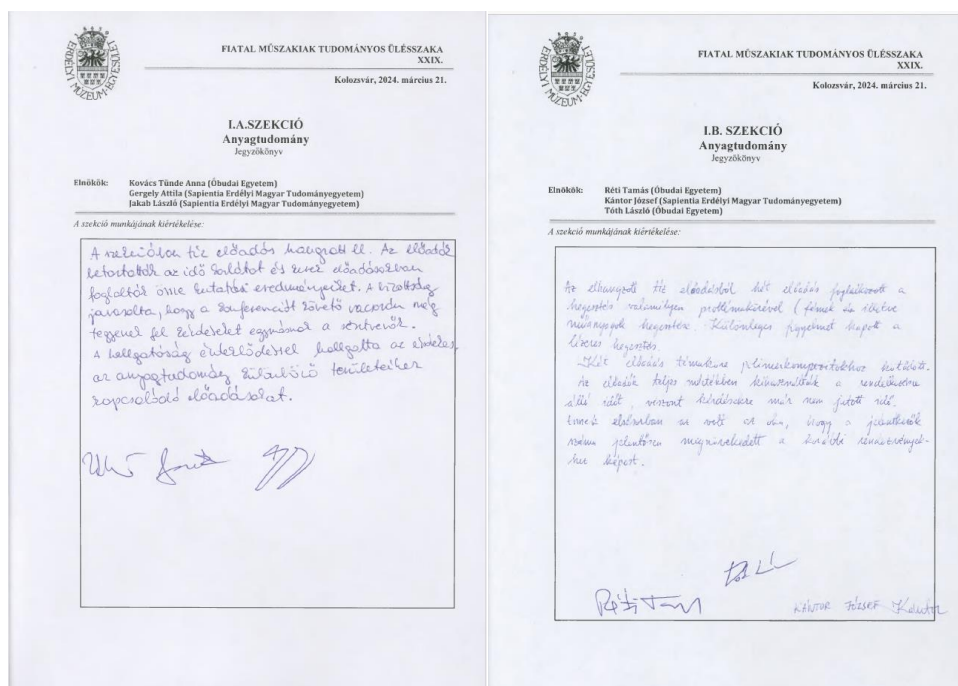 ERDÉLYI MÚZEUM-EGYESÜLET
FIATAL MŰSZAKIAK TUDOMÁNYOS ÜLÉSSZAKA
XXIX.
Kolozsvár, 2024. március 21.
I.A.SZEKCIÓ
Anyagtudomány
Jegyzőkönyv
Elnökök: Kovács Tünde Anna (Óbudai Egyetem)
Gergely Attila (Sapientia Erdélyi Magyar Tudományegyetem)
Jakab László (Sapientia Erdélyi Magyar Tudományegyetem)
A szekció munkájának kiértékelése:
A szekcióban tíz előadás hangzott el. Az előadók
betartották az idő korlátot és előadásokban
foglalták össze kutatási eredményeiket. A bizottság
javasolta, hogy a konferenciát követő vacsorán még
tegyenek fel kérdéseket egymásnak a résztvevők.
A hallgatóság érdeklődéssel hallgatta az érdekes,
az anyagtudomány különböző területeihez
kapcsolódó előadásokat.
ERDÉLYI MÚZEUM-EGYESÜLET
FIATAL MŰSZAKIAK TUDOMÁNYOS ÜLÉSSZAKA
XXIX.
Kolozsvár, 2024. március 21.
I.B. SZEKCIÓ
Anyagtudomány
Jegyzőkönyv
Elnökök: Réti Tamás (Óbudai Egyetem)
Kántor József (Sapientia Erdélyi Magyar Tudományegyetem)
Tóth László (Óbudai Egyetem)
A szekció munkájának kiértékelése:
Az elhangzott tíz előadásból két előadás foglalkozott a
hegesztés valamilyen problémakörével (fémek és illetve
műanyagok hegesztése. Különleges figyelmet kapott a
lézeres hegesztés.
Két előadás témaköre polimerkompozitokhoz kötődött.
Az előadók teljes mértékben kihasználták a rendelkezésre
álló időt, viszont kérdésekre már nem jutott idő.
Ennek elsősorban az volt az oka, hogy a jelentkezők
száma jelentősen megnövekedett a korábbi rendezvények-
hez képest.
Réti T
KÁNTOR JÓZSEF Kántor